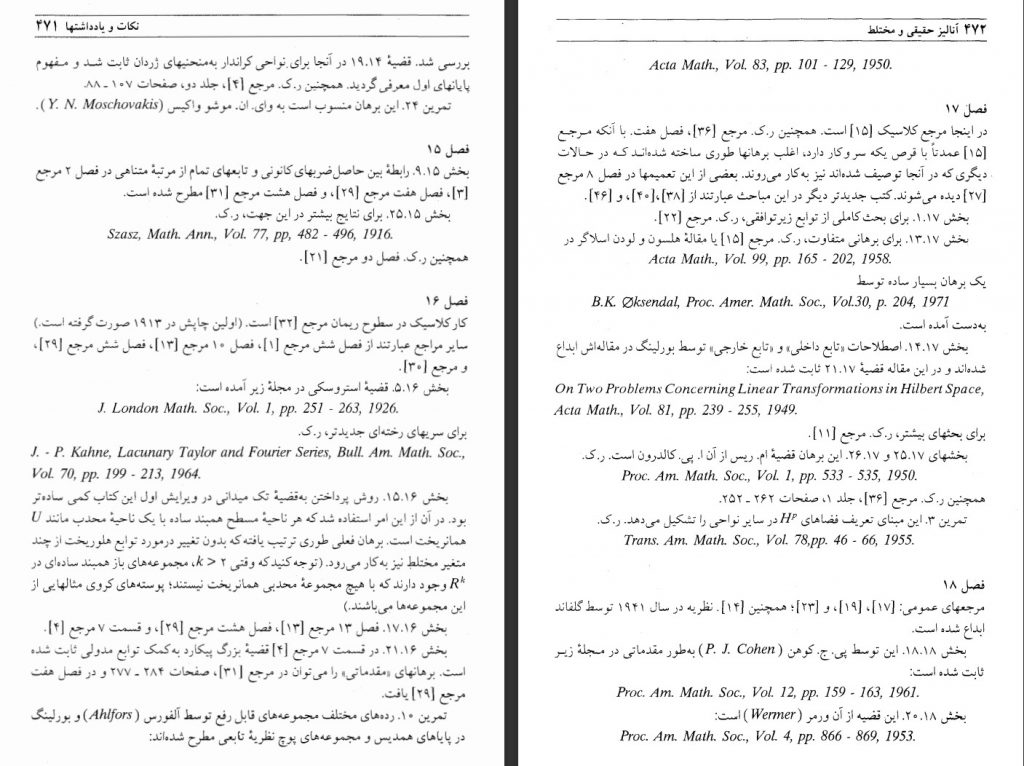 نکات و یادداشتها ۴۷۱
بررسی شد. قضیهٔ ۱۹.۱۴ در آنجا برای نواحی کراندار به‌منحنیهای ژردان ثابت شد و مفهوم
پایانهای اول معرفی‌گردید. همچنین ر.ک. مرجع [۴]، جلد دو، صفحات ۱۰۷ ـ ۸۸.
تمرین ۲۴. این برهان منسوب است به وای. ان. موشو واکیس (Y. N. Moschovakis).
فصل ۱۵
بخش ۹.۱۵. رابطهٔ بین حاصل‌ضربهای‌کانونی و تابعهای تمام از مرتبهٔ متناهی در فصل ۲ مرجع
[۳]، فصل هفت مرجع [۲۹]، و فصل هشت مرجع [۳۱] مطرح شده است.
بخش ۲۵.۱۵. برای نتایج بیشتر در این جهت، ر.ک.
Szasz, Math. Ann., Vol. 77, pp, 482 - 496, 1916.
همچنین ر.ک. فصل دو مرجع [۲۱].
فصل ۱۶
کار کلاسیک در سطوح ریمان مرجع [۳۲] است. (اولین چاپش در ۱۹۱۳ صورت گرفته است.)
سایر مراجع عبارتند از فصل شش مرجع [۱]، فصل ۱۰ مرجع [۱۳]، فصل شش مرجع [۲۹]،
و مرجع [۳۰].
بخش ۵.۱۶. قضیهٔ استروسکی در مجلهٔ زیر آمده است:
J. London Math. Soc., Vol. 1, pp. 251 - 263, 1926.
برای سریهای رخنه‌ای جدیدتر، ر.ک.
J. - P. Kahne, Lacunary Taylor and Fourier Series, Bull. Am. Math. Soc.,
Vol. 70, pp. 199 - 213, 1964.
بخش ۱۵.۱۶. روش پرداختن به‌قضیهٔ تک میدانی در ویرایش اول این کتاب کمی ساده‌تر
بود. در آن از این امر استفاده شد که هر ناحیهٔ مسطح همبند ساده با یک ناحیهٔ محدب مانند U
همانریخت است. برهان فعلی طوری ترتیب یافته‌که بدون تغییر درمورد توابع هلوریخت از چند
متغیر مختلط نیز به‌کار می‌رود. (توجه‌کنید که وقتی k > ۲، مجموعه‌های باز همبند ساده‌ای در
Rᵏ وجود دارند که با هیچ مجموعهٔ محدبی همانریخت نیستند؛ پوسته‌های کروی مثالهایی از
این مجموعه‌ها می‌باشند.)
بخش ۱۷.۱۶. فصل ۱۳ مرجع [۱۳]، فصل هشت مرجع [۲۹]، و قسمت ۷ مرجع [۴].
بخش ۲۱.۱۶. در قسمت ۷ مرجع [۴] قضیهٔ بزرگ پیکارد به‌کمک توابع مدولی ثابت شده
است. برهانهای «مقدماتی» را می‌توان در مرجع [۳۱]، صفحات ۲۸۴ ـ ۲۷۷ و در فصل هفت
مرجع [۲۹] یافت.
تمرین ۱۰. رده‌های مختلف مجموعه‌های قابل رفع توسط آلفورس (Ahlfors) و بورلینگ
در پایاهای همدیس و مجموعه‌های پوچ نظریهٔ تابعی مطرح شده‌اند:
۴۷۲ آنالیز حقیقی و مختلط
Acta Math., Vol. 83, pp. 101 - 129, 1950.
فصل ۱۷
در اینجا مرجع کلاسیک [۱۵] است. همچنین ر.ک. مرجع [۳۶]، فصل هفت. با آنکه مرجع
[۱۵] عمدتاً با قرص یکه سروکار دارد، اغلب برهانها طوری ساخته شده‌اند که در حالات
دیگری که در آنجا توصیف شده‌اند نیز به‌کار می‌روند. بعضی از این تعمیمها در فصل ۸ مرجع
[۲۷] دیده می‌شوند. کتب جدیدتر دیگر در این مباحث عبارتند از [۳۸]،[۴۰]، و [۴۶].
بخش ۱.۱۷. برای بحث‌کاملی از توابع زیرتوافقی، ر.ک. مرجع [۲۲].
بخش ۱۳.۱۷. برای برهانی متفاوت، ر.ک. مرجع [۱۵] یا مقالهٔ هلسون و لودن اسلاگر در
Acta Math., Vol. 99, pp. 165 - 202, 1958.
یک برهان بسیار ساده توسط
B.K. Øksendal, Proc. Amer. Math. Soc., Vol.30, p. 204, 1971
به‌دست آمده است.
بخش ۱۴.۱۷. اصطلاحات «تابع داخلی» و «تابع خارجی» توسط بورلینگ در مقاله‌اش ابداع
شده‌اند و در این مقاله قضیهٔ ۲۱.۱۷ ثابت شده است:
On Two Problems Concerning Linear Transformations in Hilbert Space,
Acta Math., Vol. 81, pp. 239 - 255, 1949.
برای بحثهای بیشتر، ر.ک. مرجع [۱۱].
بخشهای ۲۵.۱۷ و ۲۶.۱۷. این برهان قضیهٔ ام. ریس از آن ا. پی.کالدرون است. ر.ک.
Proc. Am. Math. Soc., Vol. 1, pp. 533 - 535, 1950.
همچنین ر.ک. مرجع [۳۶]، جلد ۱، صفحات ۲۶۲ ـ ۲۵۲.
تمرین ۳. این مبنای تعریف فضاهای Hᵖ در سایر نواحی را تشکیل می‌دهد. ر.ک.
Trans. Am. Math. Soc., Vol. 78,pp. 46 - 66, 1955.
فصل ۱۸
مرجعهای عمومی: [۱۷]، [۱۹]، و [۲۳]؛ همچنین [۱۴]. نظریه در سال ۱۹۴۱ توسط گلفاند
ابداع شده است.
بخش ۱۸.۱۸. این توسط پی. ج. کوهن (P. J. Cohen) به‌طور مقدماتی در مجلهٔ زیر
ثابت شده است:
Proc. Am. Math. Soc., Vol. 12, pp. 159 - 163, 1961.
بخش ۲۰.۱۸. این قضیه از آن ورمر (Wermer) است:
Proc. Am. Math. Soc., Vol. 4, pp. 866 - 869, 1953.